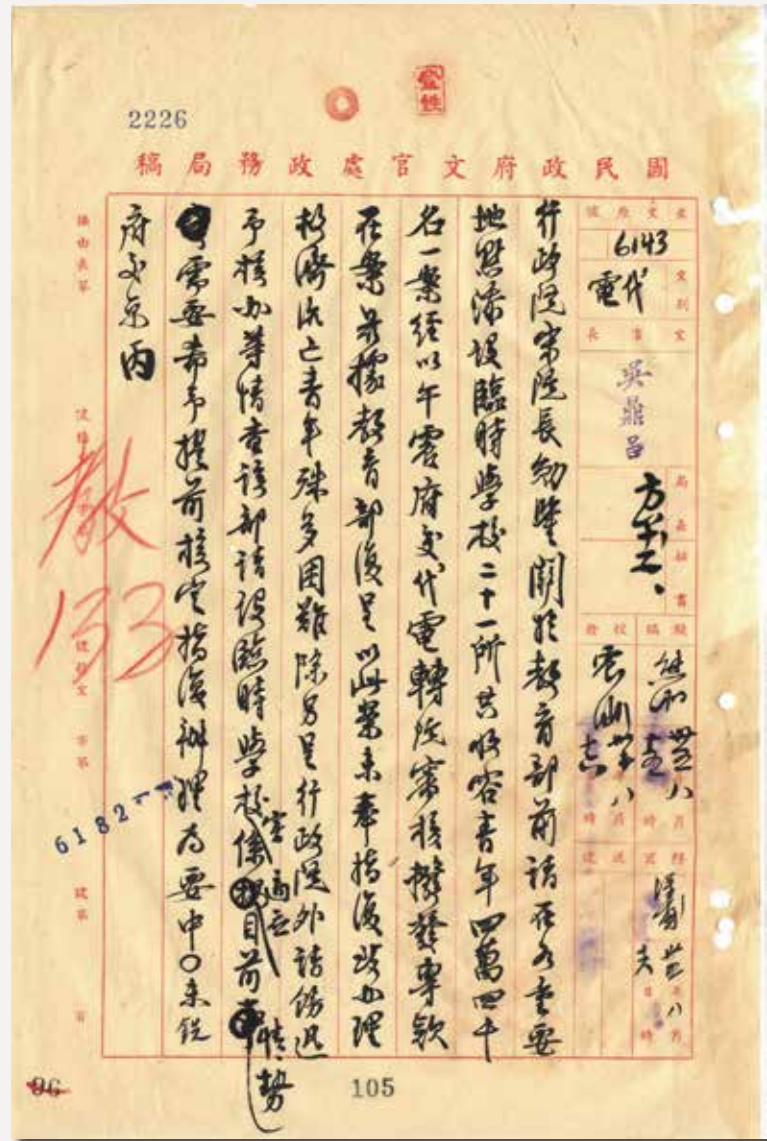 2226
國民政府文官處政務局稿
來文原號
6143
文別
代電
文官長
吳鼎昌
局長
秘書
行政院宋院長勛鑒關於教育部前請在各重要
地點添設臨時學校二十一所共收容青年四萬四千
名一案經以午霰府交代電轉院審核撥發專款
在案茲據教育部復呈以此案未奉指復致辦理
救濟流亡青年殊多困難除另呈行政院外請飭迅
予核办等情查該部請設臨時學校係實適應目前情勢
需要希予提前核定指復辦理為要中〇未銑
府交京丙
教
133
61827
96
105